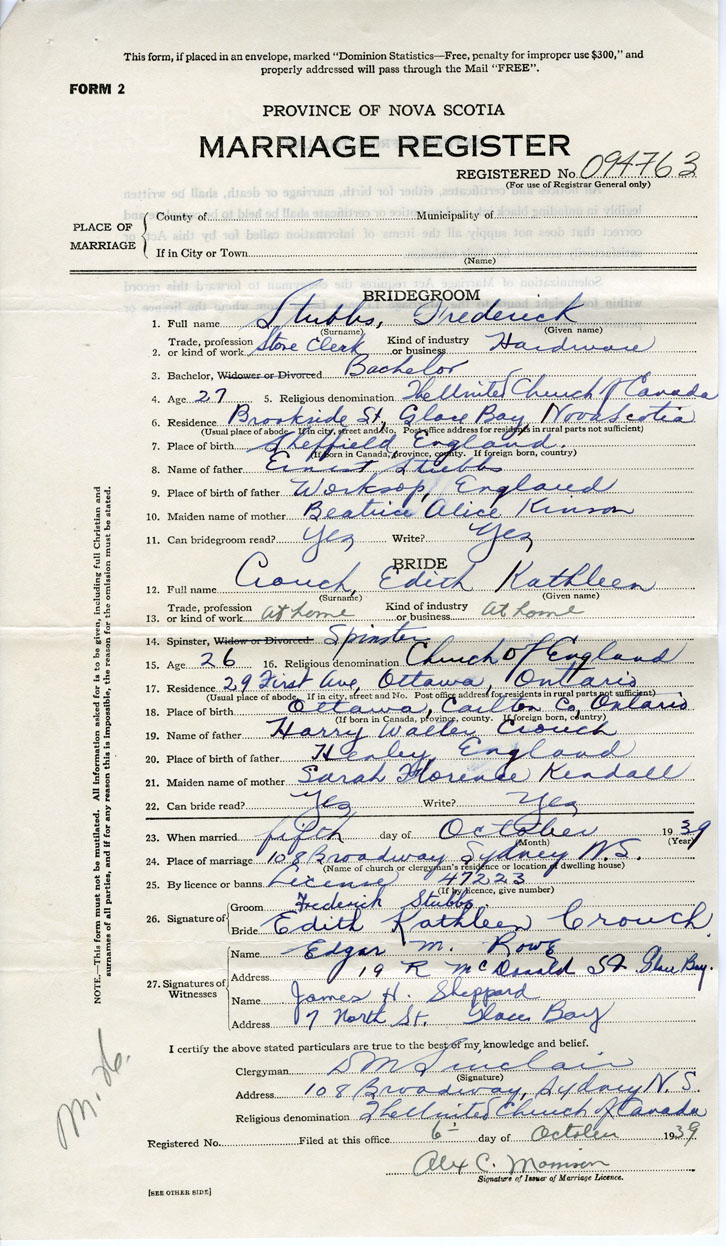 This form, if placed in an envelope, marked "Dominion Statistics—Free, penalty for improper use $300," and
properly addressed will pass through the Mail "FREE".
FORM 2
PROVINCE OF NOVA SCOTIA
MARRIAGE REGISTER
REGISTERED No. 094763
(For use of Registrar General only)
PLACE OF MARRIAGE
County of Municipality of
If in City or Town
(Name)
BRIDEGROOM
1. Full name Stubbs, Frederick
(Surname) (Given name)
2. Trade, profession or kind of work Store Clerk Kind of industry or business Hardware
3. Bachelor, Widower or Divorced Bachelor
4. Age 27 5. Religious denomination The United Church of Canada
6. Residence Brookside St, Glace Bay, Nova Scotia
(Usual place of abode. If in city, street and No. Post office address for residents in rural parts not sufficient)
7. Place of birth Sheffield England.
(If born in Canada, province, county. If foreign born, country)
8. Name of father Ernest Stubbs
9. Place of birth of father Worksop, England
10. Maiden name of mother Beatrice Alice Kinson
11. Can bridegroom read? Yes Write? Yes
BRIDE
12. Full name Crouch, Edith Kathleen
(Surname) (Given name)
13. Trade, profession or kind of work at home Kind of industry or business at home
14. Spinster, Widow or Divorced. Spinster
15. Age 26 16. Religious denomination Church of England
17. Residence 29 First Ave, Ottawa, Ontario
(Usual place of abode. If in city, street and No. Post office address for residents in rural parts not sufficient)
18. Place of birth Ottawa, Carlton Co, Ontario
(If born in Canada, province, county. If foreign born, country)
19. Name of father Harry Walter Crouch
20. Place of birth of father Henley, England
21. Maiden name of mother Sarah Florence Kendall
22. Can bride read? Yes Write? Yes
23. When married fifth day of October 1939
(Month) (Year)
24. Place of marriage 108 Broadway Sydney N.S.
(Name of church or clergyman's residence or location of dwelling house)
25. By licence or banns License 47223
(If by licence, give number)
26. Signature of
Groom Frederick Stubbs
Bride Edith Kathleen Crouch.
27. Signatures of Witnesses
Name Edgar M. Rowe
Address 19 R McDonald St Glace Bay.
Name James H. Sheppard
Address 7 North St. Glace Bay
I certify the above stated particulars are true to the best of my knowledge and belief.
Clergyman D M Sinclair
(Signature)
Address 108 Broadway, Sydney N.S.
Religious denomination The United Church of Canada
Registered No. Filed at this office 6 day of October 1939
Alex C. Morrison
Signature of Issuer of Marriage Licence.
[SEE OTHER SIDE]
NOTE.—This form must not be mutilated. All information asked for is to be given, including full Christian and
surnames of all parties, and if for any reason this is impossible, the reason for the omission must be stated.